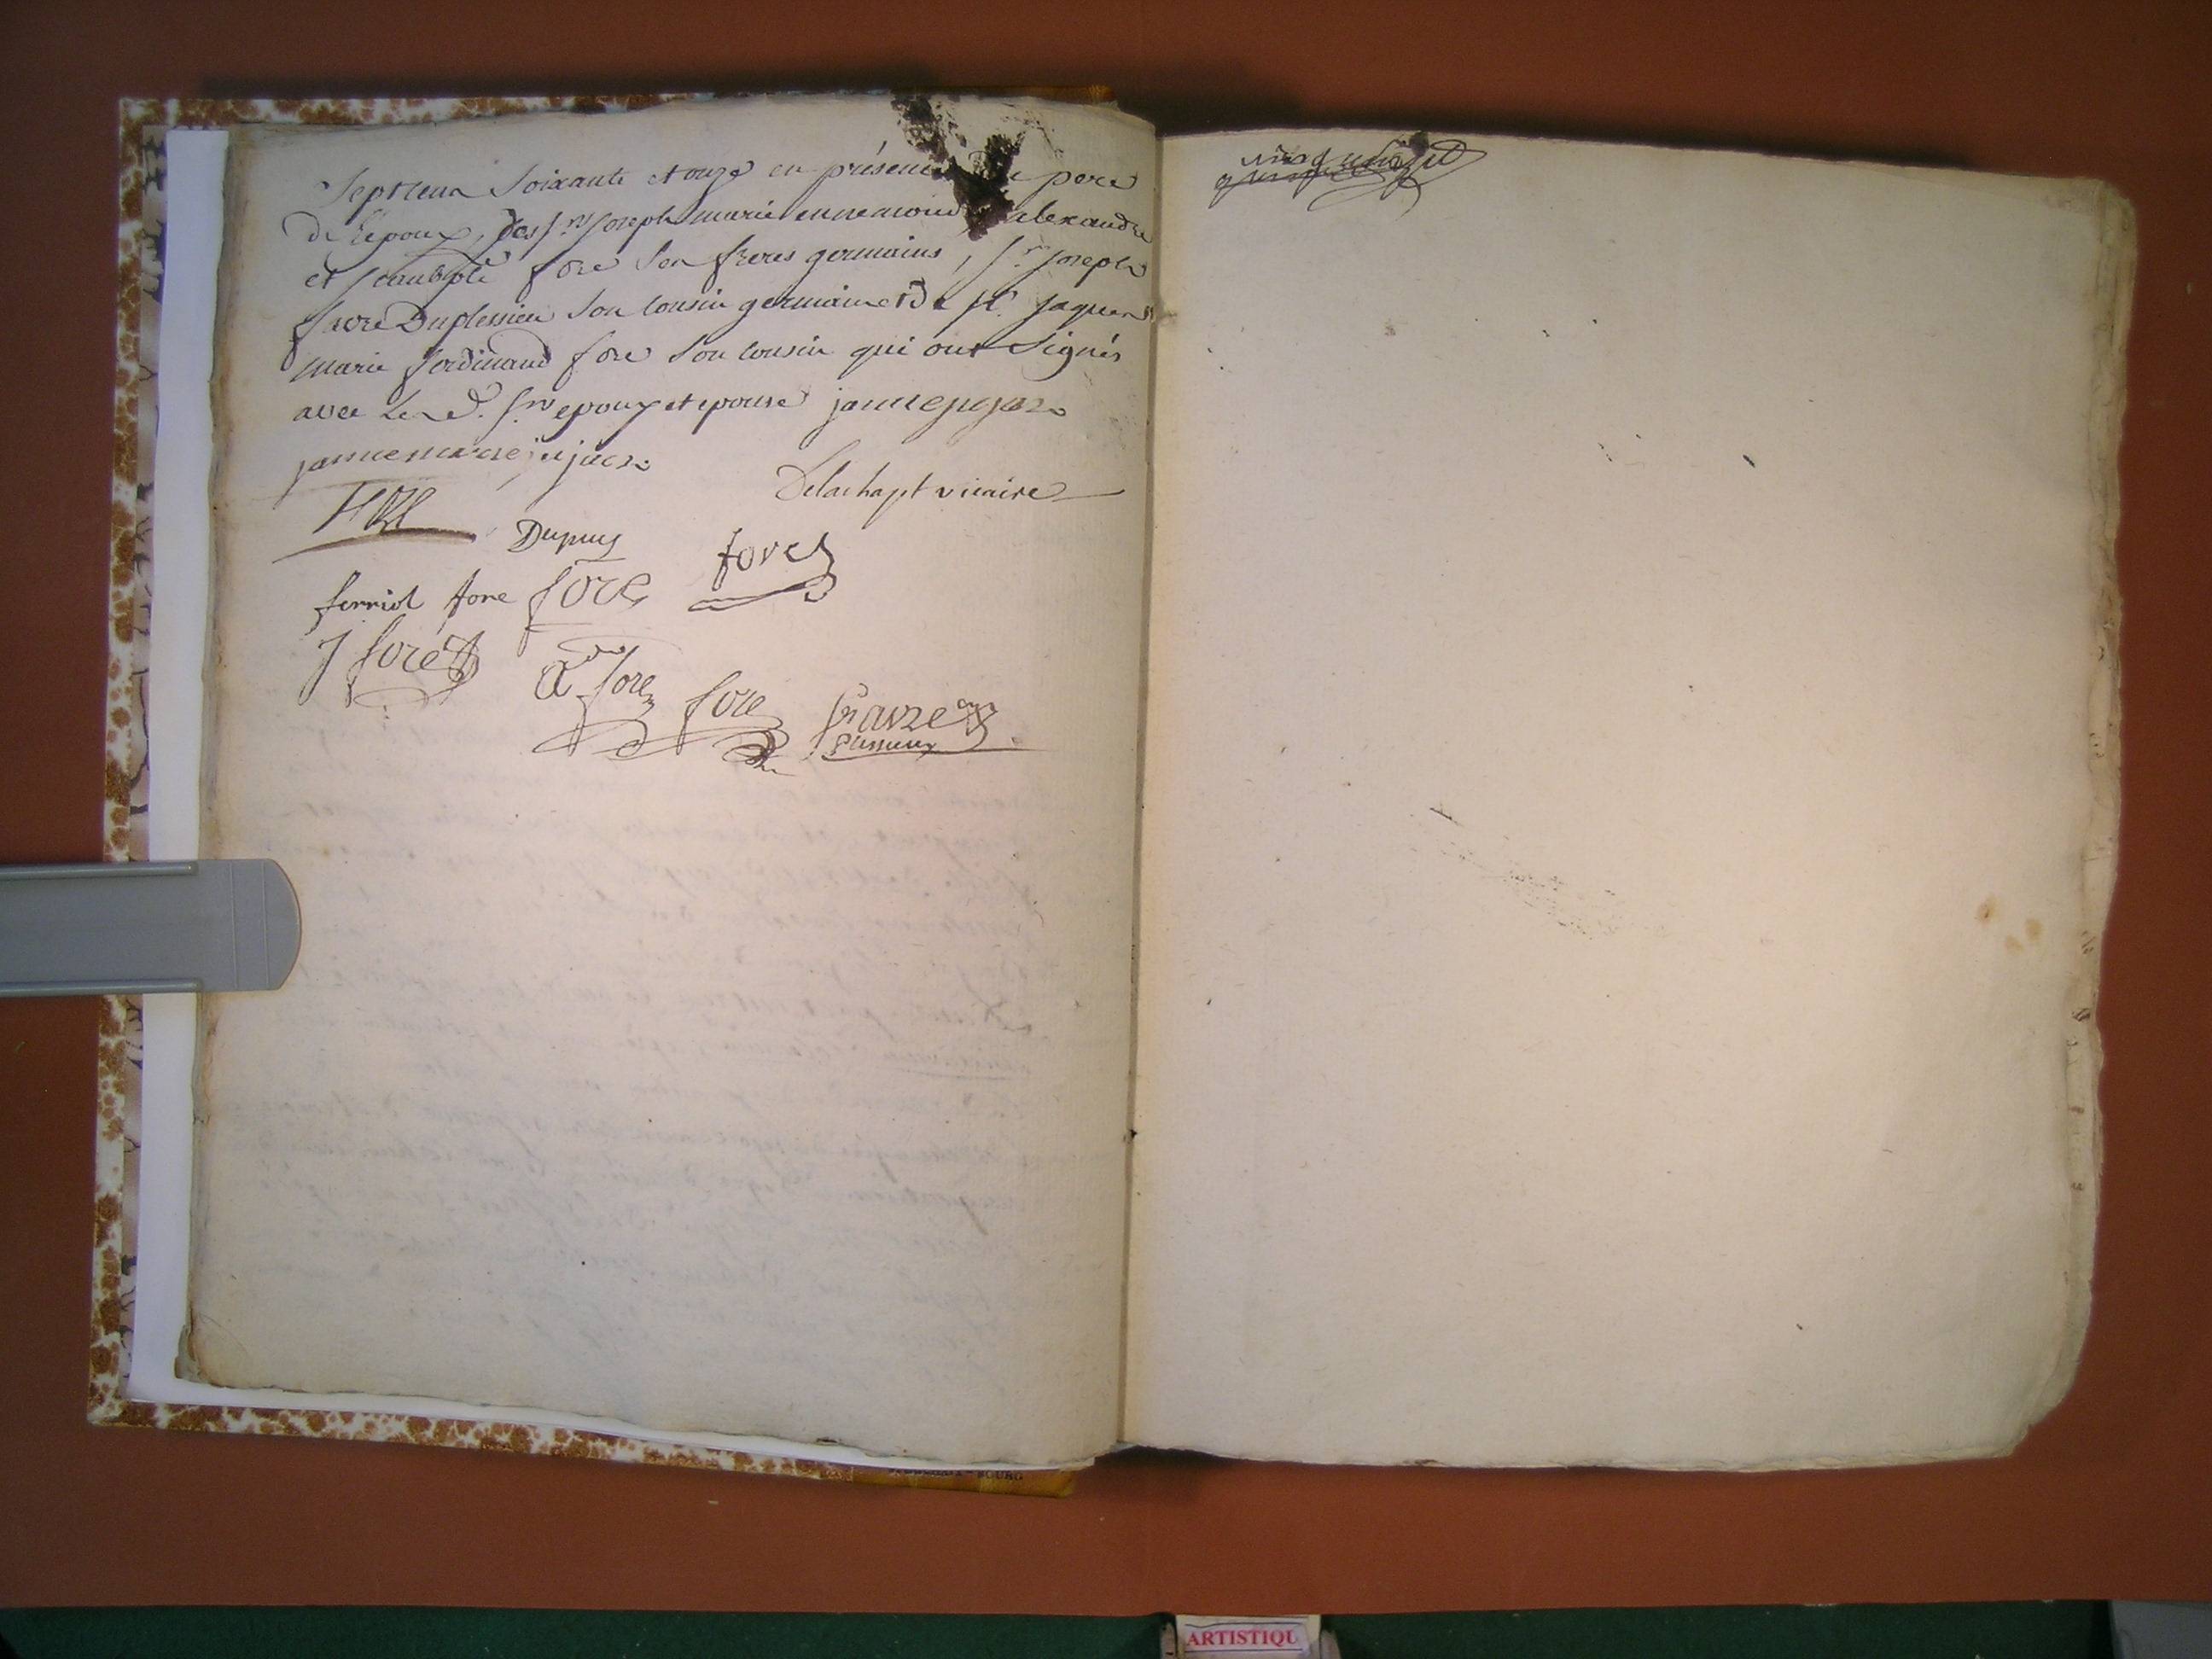 Sept cent Soixante et onze en présence de père
de l'époux, des Srs Joseph marie ennemond alexandre
et fore Ses freres germains, Sr Joseph
favre Duplessieu Son Cousin germain et de Sr Jaques
marie ferdinand fore Son Cousin qui ont Signés
avec le d. Srs epoux et epouse
janne marie
Delachapt vicaire
fore
Dupuy
fore
ferriol fore fore
J fore
A fore
fore
favre
Plessieux
ARTISTIQU